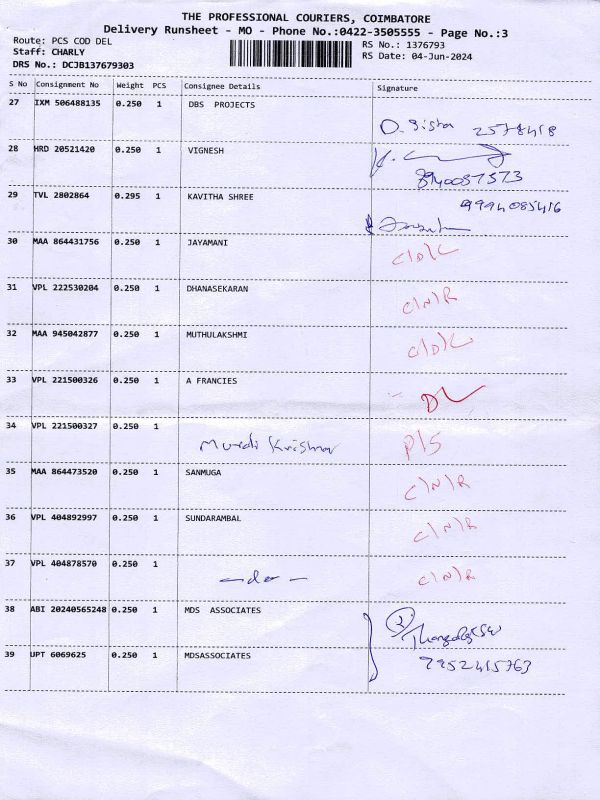 THE PROFESSIONAL COURIERS, COIMBATORE
Delivery Runsheet - MO - Phone No.:0422-3505555 - Page No.:3
Route: PCS COD DEL
RS No.: 1376793
Staff: CHARLY
RS Date: 04-Jun-2024
DRS No.: DCJB137679303
S No Consignment No Weight PCS Consignee Details Signature
27 IXM 506488135 0.250 1 DBS PROJECTS
28 HRD 20521420 0.250 1 VIGNESH
29 TVL 2802864 0.295 1 KAVITHA SHREE 9994085416
30 MAA 864431756 0.250 1 JAYAMANI C\D\L
31 VPL 222530204 0.250 1 DHANASEKARAN C\N\R
32 MAA 945042877 0.250 1 MUTHULAKSHMI C\D\L
33 VPL 221500326 0.250 1 A FRANCIES DL
34 VPL 221500327 0.250 1 Krishna P\S
35 MAA 864473520 0.250 1 SANMUGA C\N\R
36 VPL 404892997 0.250 1 SUNDARAMBAL C\N\R
37 VPL 404878570 0.250 1 -do- C\N\R
38 ABI 20240565248 0.250 1 MDS ASSOCIATES 2
39 UPT 6069625 0.250 1 MDSASSOCIATES 7952415763